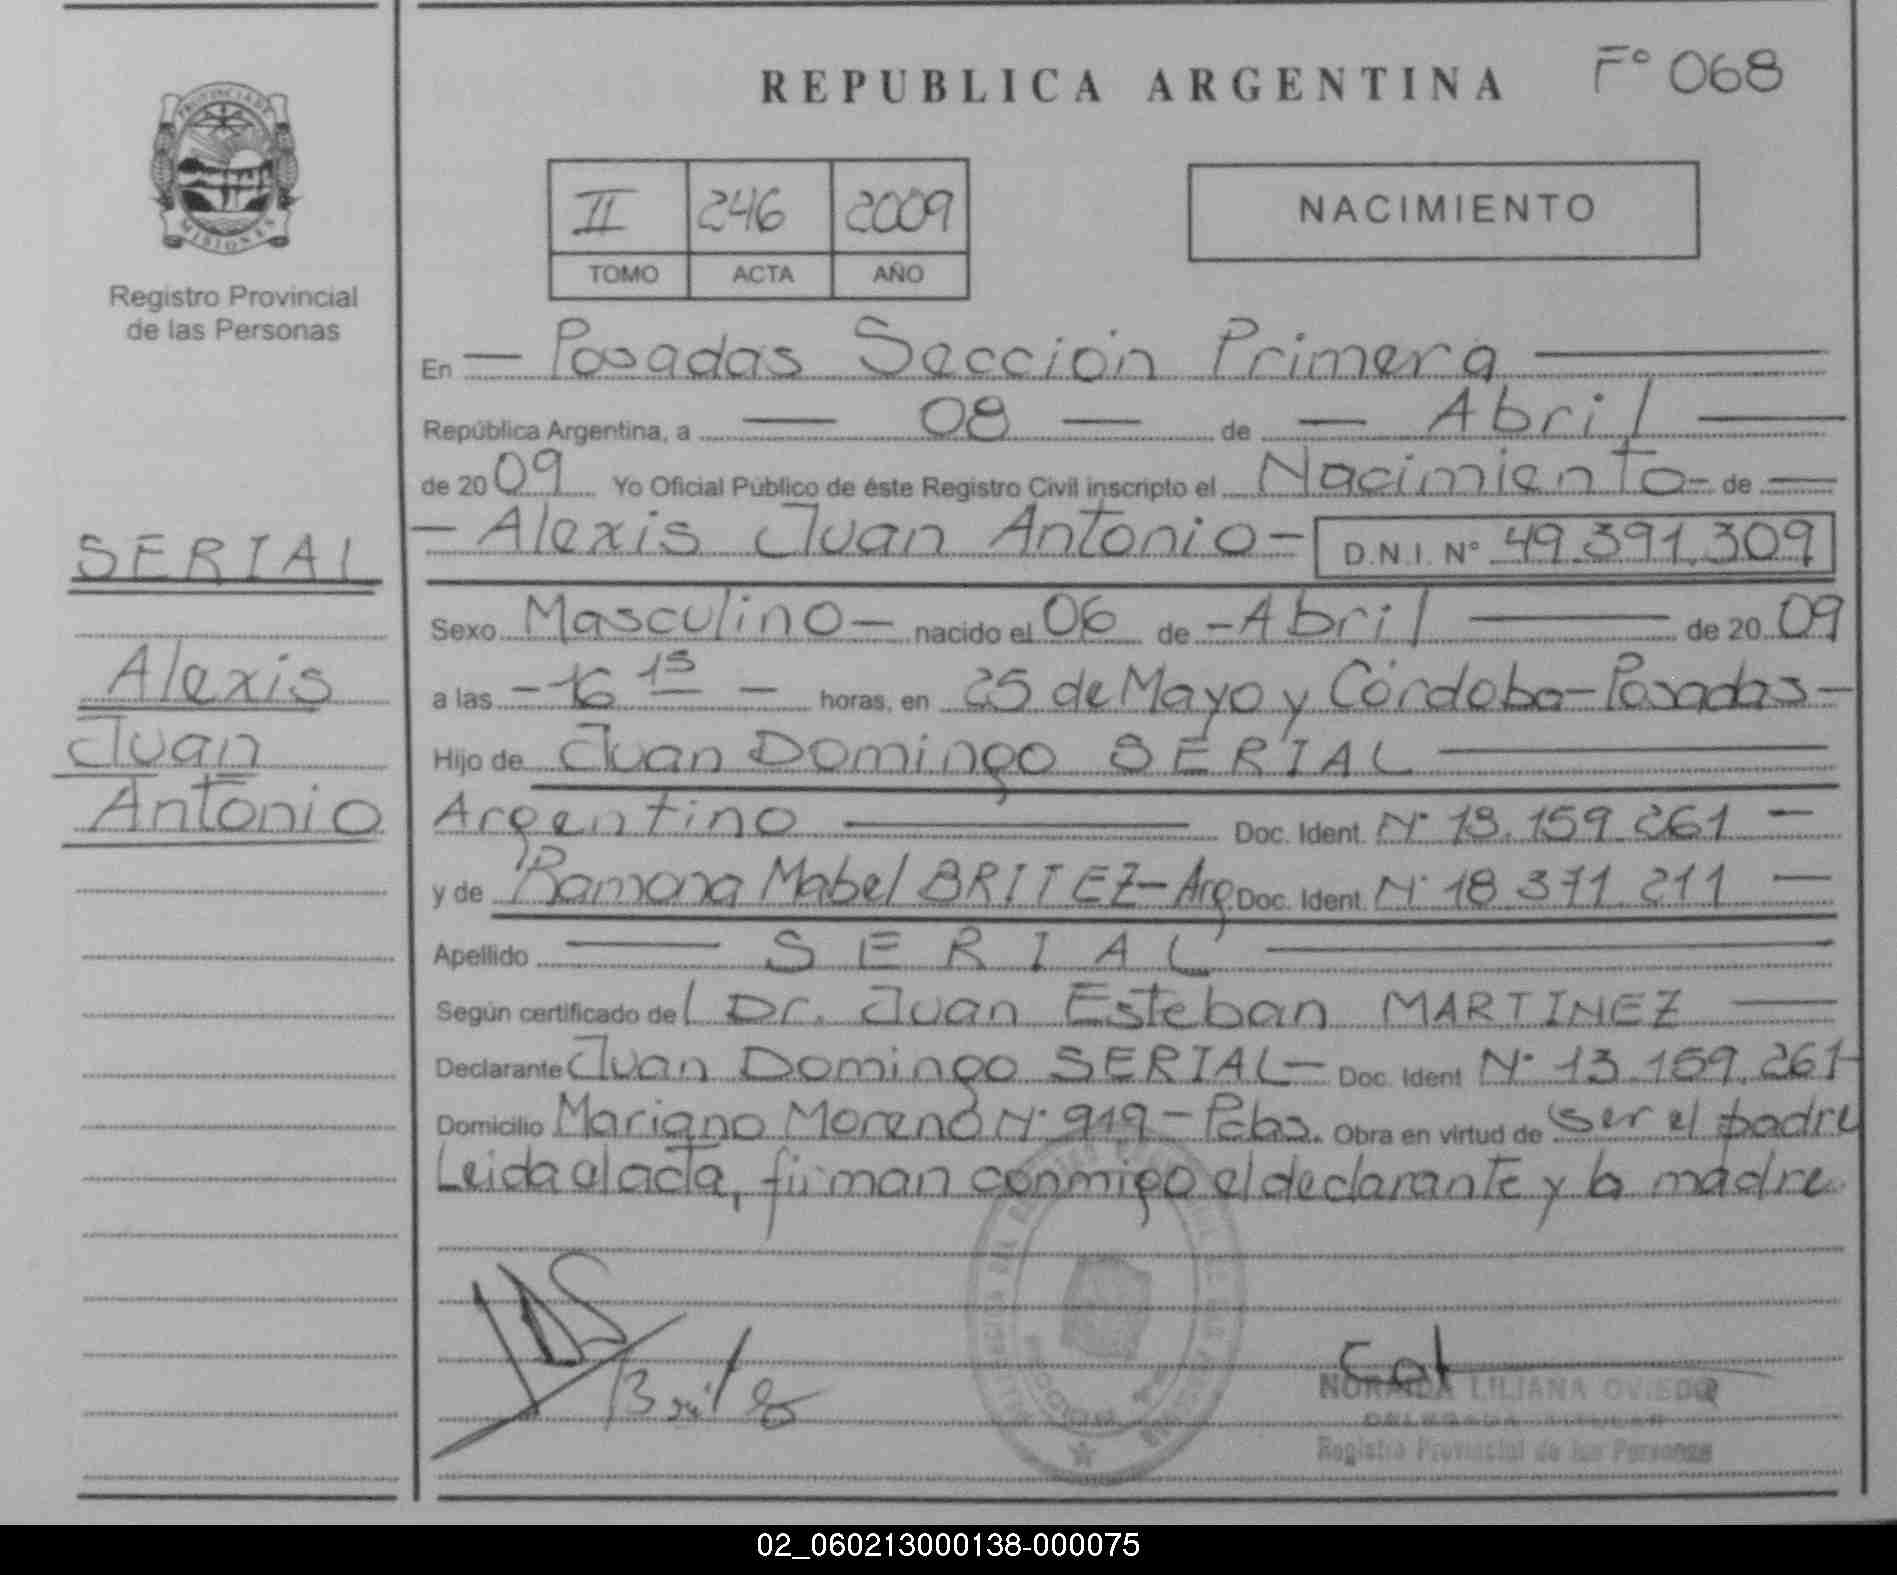 REPUBLICA ARGENTINA Fº 068
PROVINCIA DE
MISIONES
Registro Provincial
de las Personas
II 246 2009
TOMO ACTA AÑO
NACIMIENTO
En — Posadas Sección Primera —
República Argentina, a — 08 — de — Abril —
de 2009 Yo Oficial Público de éste Registro Civil inscripto el Nacimiento - de —
— Alexis Juan Antonio — D.N.I. Nº 49.391.309
SERIAL
Alexis
Juan
Antonio
Sexo Masculino — nacido el 06 de - Abril — de 2009
a las - 16 15 — horas, en 25 de Mayo y Córdoba - Posadas -
Hijo de Juan Domingo SERIAL —
Argentino — Doc. Ident. Nº 13.159.261 —
y de Ramona Mabel BRITEZ - Arg. Doc. Ident. Nº 18.371.211 —
Apellido — SERIAL —
Según certificado del Dr. Juan Esteban MARTINEZ —
Declarante Juan Domingo SERIAL — Doc. Ident Nº 13.159.261 -
Domicilio Mariano Moreno Nº 919 - Pdas. Obra en virtud de ser el padre
Leida el acta, firman conmigo el declarante y la madre.
NORAIDA LILIANA OVIEDO
DELEGADA TITULAR
Registro Provincial de las Personas
02_060213000138-000075